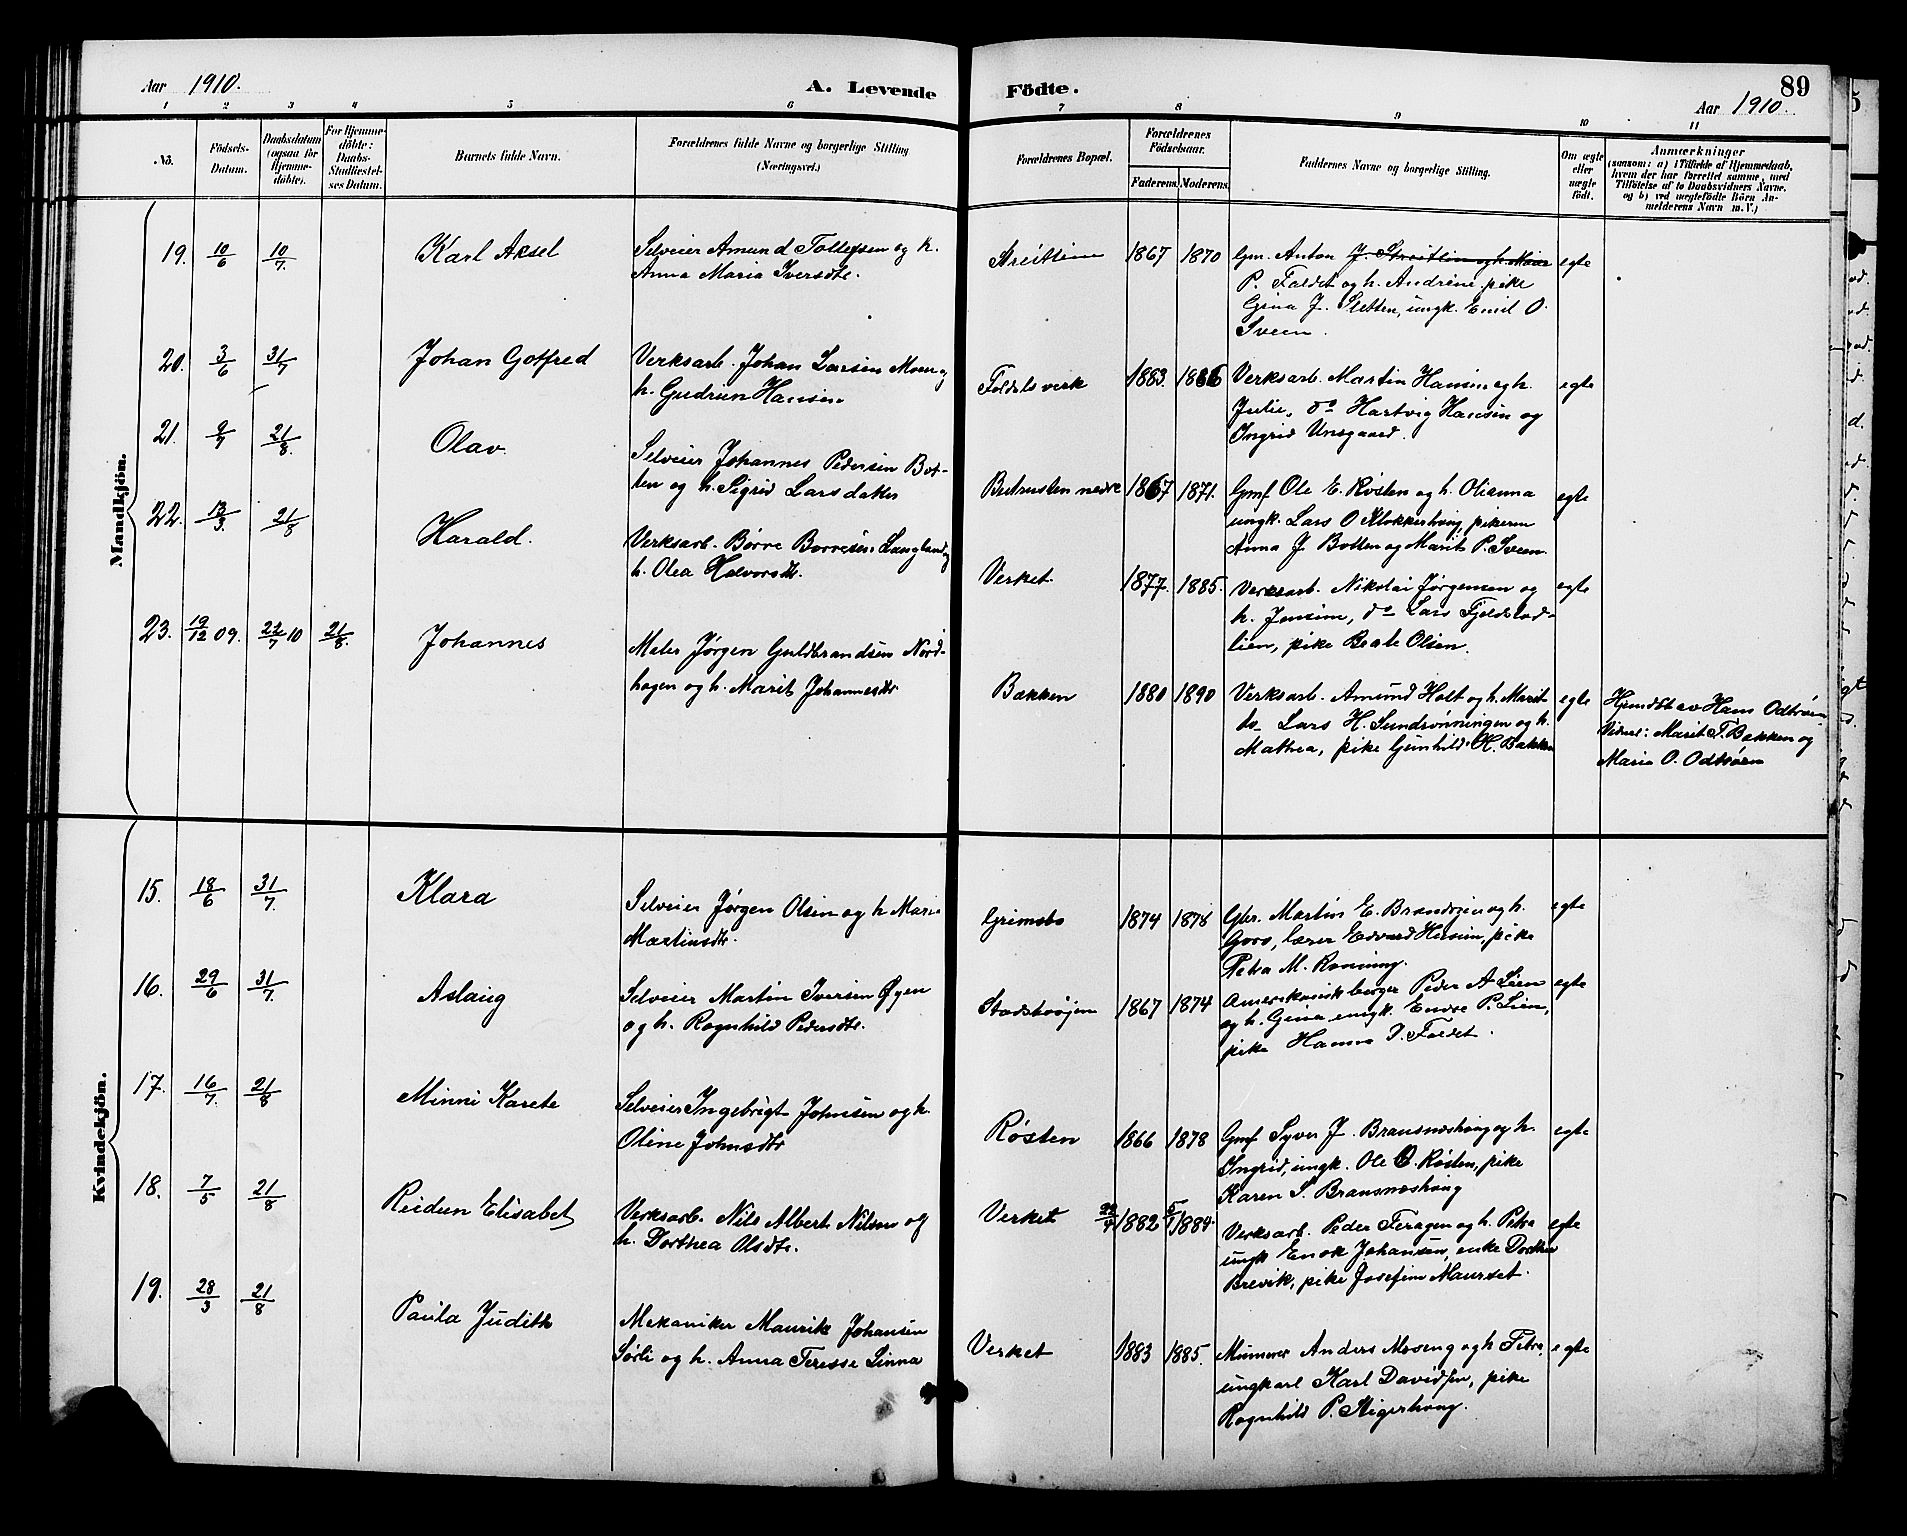 Aar 1910.
A. Levende
Födte.
89
Aar 1910.
1 2 3 4 5 6 7 8 9 10 11
No.
Födsels-
Datum.
Daabsdatum
(ogsaa for
Hjemme-
döbte).
For Hjemme-
döbte:
Daabs-
Stadfæstel-
ses Datum.
Barnets fulde Navn.
Forældrenes fulde Navne og borgerlige Stilling
(Næringsvei.)
Forældrenes Bopæl.
Forældrenes
Födselsaar.
Faderens. Moderens.
Faddernes Navne og borgerlige Stilling.
Om ægte
eller
uægte
födt.
Anmærkninger
(saasom: a) i Tilfælde af Hjemmedaab,
hvem der har forrettet samme, med
Tilföielse af to Daabsvidners Navne,
og b) ved uægtefödte Börn An-
melderens Navn m. V.)
Mandkjön.
19. 10/6 10/7 Karl Aksel
Selveier Amund Tollefsen og h.
Anna Maria Iversdtr.
Streitlien 1867 1870
Gm. Anton J. Streitlien og h. Maria
P. Foldet og h. Andrine, pike
Gina J. Sletten, ungk. Emil O.
Sveen.
egte
20. 3/6 31/7 Johan Gotfred
Verksarb. Johan Larsen Moen og
h. Gudrun Hansen
Foldalsverk 1883. 1886
Verksarb. Martin Hansen og h.
Julie, do Hartvig Hansen og
Ingrid Unsgaard.
egte
21. 9/7 21/8 Olav
Selveier Johannes Pedersen Bot-
ten og h. Sigrid Larsdatter
nedre 1867 1871.
Gmf Ole E. Røsten og h. Olianna
ungk. Lars O Klokkerhaug, pikerne
Anna J Botten og Marit P. Sveen.
egte
22. 13/3 21/8 Harald.
Verksarb. Børre Børresen Langland og
h. Olea Halvorsdtr.
Verket 1877. 1885.
Verksarb. Nikolai Jørgensen og
h. Jensine, do Lars Fjeldstad-
lien, pike Beate Olsen.
egte
23. 19/12 09. 22/7 10 21/8. Johannes
Maler Jørgen Guldbrandsen Nord-
hagen og h. Marit Johannesdtr.
Bakken 1880 1890
Verksarb. Amund Holt og h. Marit
do Lars H. Sundrønningen og h.
Mathea, pike Gunhild H. Bakken
egte
Hjemdøbt av Hans Odtrøen
Vidne: Marit T. Bakken og
Maria O. Odtrøen
Kvindekjön.
15. 18/6 31/7. Klara
Selveier Jørgen Olsen og h Marie
Martinsdtr.
Grimsbo 1874 1878
Gbr. Martin E. Brandvoien og h.
Goro, lærer Edvard Hansen, pike
Petra M. Ronning.
egte
16. 29/6 31/7. Aslaug
Selveier Martin Iversen Øyen
og h. Ragnhild Pedersdtr.
1867 1874
Amerikansk borger Peder A Lien
og h. Gina ungk. Endre P. Lien,
pike Hanna J. Foldet.
egte
17. 16/7. 21/8 Minni Karete
Selveier Ingebrigt Johnsen og h.
Oline Johnsdtr
Røsten 1866 1878
Gmf Syver J. Bransnæshaug og h.
Ingrid, ungk. Ole O. Røsten, pike
Karen S. Bransnæshaug
egte
18. 7/5 21/8 Reidun Elisabet
Verksarb. Nils Albert Nilsen og
h. Dorthea Olsdtr.
Verket 22/4 1882 5/1 1884.
Verksarb. Peder Feragen og h. Petra
ungk Enok Johansen, enke Dorthea
Brevik, pike Josefine Maurset.
egte
19. 28/3 21/8 Paula Judith
Mekaniker Maurits Johansen
Sørli og h. Anna Terese Linna
Verket 1883 1885.
Murmer Anders Moseng og h Petra,
ungkarl Karl Davidsen, pike
Ragnhild P. Steigerhaug.
egte